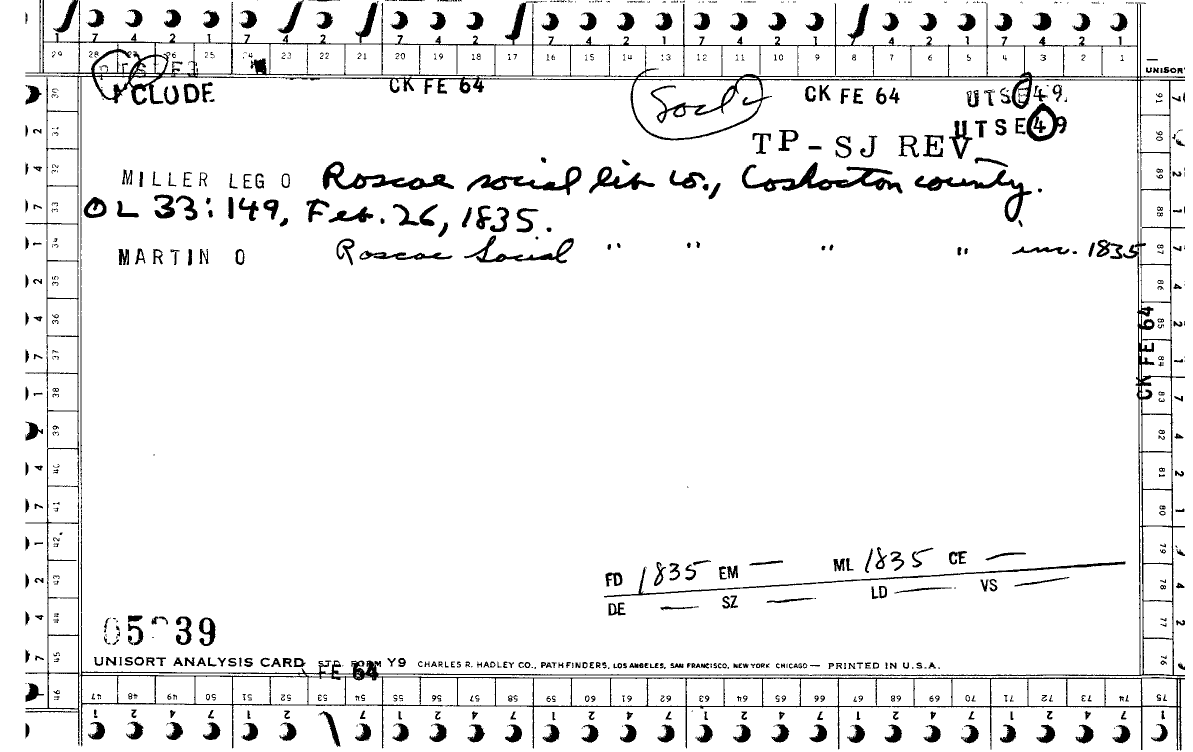 1 7 4 2 1 7 4 2 1 7 4 2 1 7 4 2 1 7 4 2 1 7 4 2 1 7 4 2 1
29 28 27 26 25 24 23 22 21 20 19 18 17 16 15 14 13 12 11 10 9 8 7 6 5 4 3 2 1
UNISORT
CLUDE CK FE 64 CK FE 64 UTSE49
UTSE49
TP-SJ REV
MILLER LEG O Roscoe social lib co., Coshocton county.
OL 33:149, Feb. 26, 1835.
MARTIN O Roscoe Social " " " " inc. 1835
CK FE 64
FD 1835 EM — ML 1835 CE —
DE — SZ — LD — VS —
UNISORT ANALYSIS CARD STD. FORM Y9 CHARLES R. HADLEY CO., PATHFINDERS, LOS ANGELES, SAN FRANCISCO, NEW YORK CHICAGO — PRINTED IN U.S.A.
FE 64
30 31 32 33 34 35 36 37 38 39 40 41 42 43 44 45 46
47 48 49 50 51 52 53 54 55 56 57 58 59 60 61 62 63 64 65 66 67 68 69 70 71 72 73 74 75
91 90 89 88 87 86 85 84 83 82 81 80 79 78 77 76